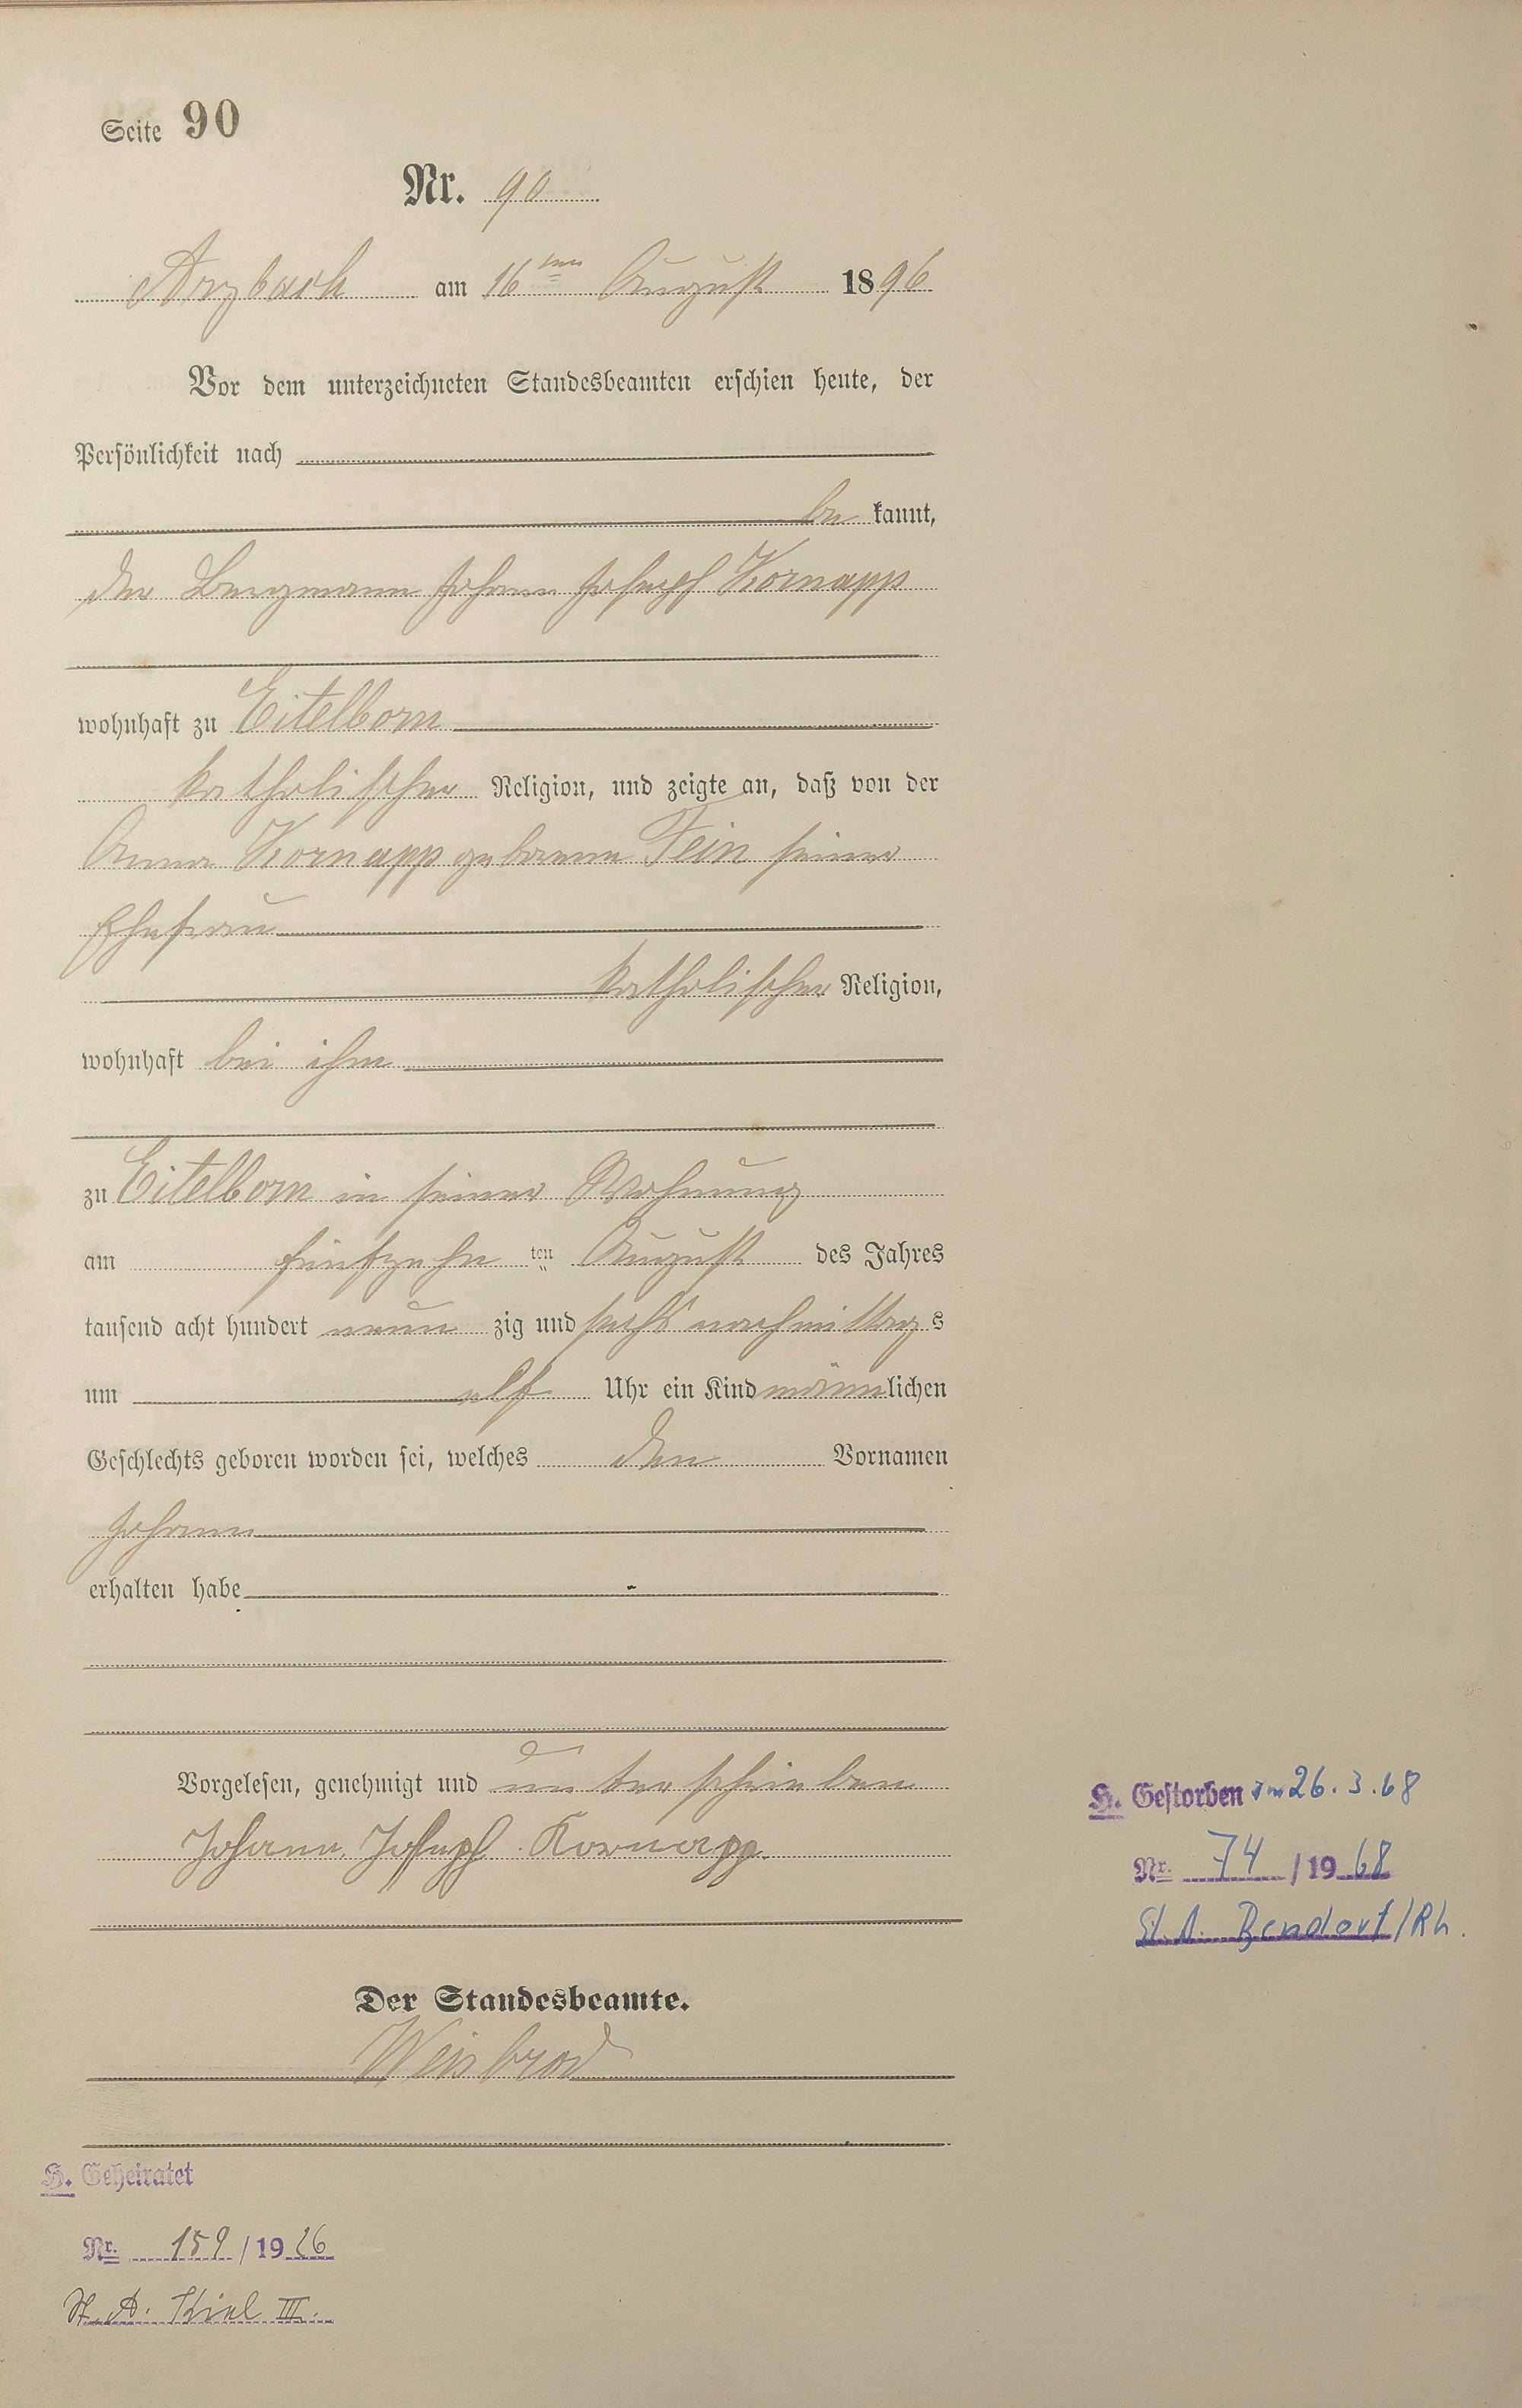 Seite 90
Nr. 90
Arzbach am 16ten August 1896
Vor dem unterzeichneten Standesbeamten erschien heute, der
Persönlichkeit nach
be kannt,
der Bergmann Johann Joseph Kornapp
wohnhaft zu Eitelborn
katholischer Religion, und zeigte an, daß von der
Anna Kornapp geborene Fein seiner
Ehefrau
katholischer Religion,
wohnhaft bei ihm
zu Eitelborn in seiner Wohnung
am fünfzehn ten August des Jahres
tausend acht hundert neun zig und sechs nachmittag s
um elf Uhr ein Kind männlichen
Geschlechts geboren worden sei, welches den Vornamen
Johann
erhalten habe
Vorgelesen, genehmigt und unterschrieben
Johann Joseph Kornapp
Der Standesbeamte.
Weisbrod
H. Gestorben am 26.3.68
Nr. 74 / 1968
St. A. Bendorf/Rh.
H. Geheiratet
Nr. 159 / 1926
St. A. Kiel III.